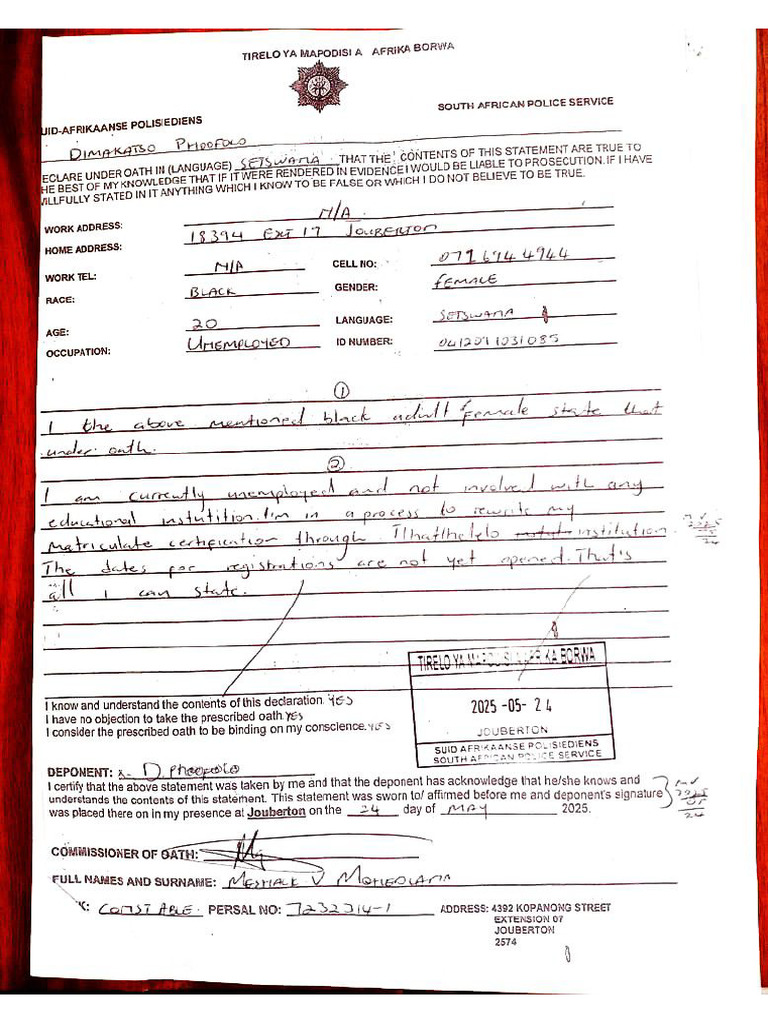 TIRELO YA MAPODISI A AFRIKA BORWA
SOUTH AFRICAN POLICE SERVICE
UID-AFRIKAANSE POLISIEDIENS
DIMAKATSO PHOOFOLO
ECLARE UNDER OATH IN (LANGUAGE) SETSWANA THAT THE CONTENTS OF THIS STATEMENT ARE TRUE TO
HE BEST OF MY KNOWLEDGE THAT IF IT WERE RENDERED IN EVIDENCE I WOULD BE LIABLE TO PROSECUTION. IF I HAVE
ILLFULLY STATED IN IT ANYTHING WHICH I KNOW TO BE FALSE OR WHICH I DO NOT BELIEVE TO BE TRUE.
WORK ADDRESS: N/A
HOME ADDRESS: 18394 EXT 17 JOUBERTON
WORK TEL: N/A CELL NO: 071 694 4944
RACE: BLACK GENDER: FEMALE
AGE: 20 LANGUAGE: SETSWANA
OCCUPATION: UNEMPLOYED ID NUMBER:
1
I the above mentioned black adult female state that
under oath.
2
I am currently unemployed and not involved with any
educational instutition. I'm in a process to rewrite my
matriculate certification through Tlhatlhelelo institution.
The dates for registrations are not yet opened. That's
all I can state.
TIRELO YA MAPODISI A AFRIKA BORWA
2025-05-24
JOUBERTON
SUID AFRIKAANSE POLISIEDIENS
SOUTH AFRICAN POLICE SERVICE
I know and understand the contents of this declaration. YES
I have no objection to take the prescribed oath YES
I consider the prescribed oath to be binding on my conscience. YES
DEPONENT: x D. PHOOFOLO
I certify that the above statement was taken by me and that the deponent has acknowledge that he/she knows and
understands the contents of this statement. This statement was sworn to/ affirmed before me and deponent's signature
was placed there on in my presence at Jouberton on the 24 day of MAY 2025.
COMMISSIONER OF OATH:
FULL NAMES AND SURNAME: MESHACK V
K: CONSTABLE PERSAL NO: 7232314-1 ADDRESS: 4392 KOPANONG STREET
EXTENSION 07
JOUBERTON
2574